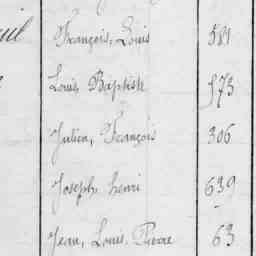 François, Louis 581
Louis, Baptiste 573
Julien, François 306
Joseph, Henri 639
Jean, Louis, Pierre 63